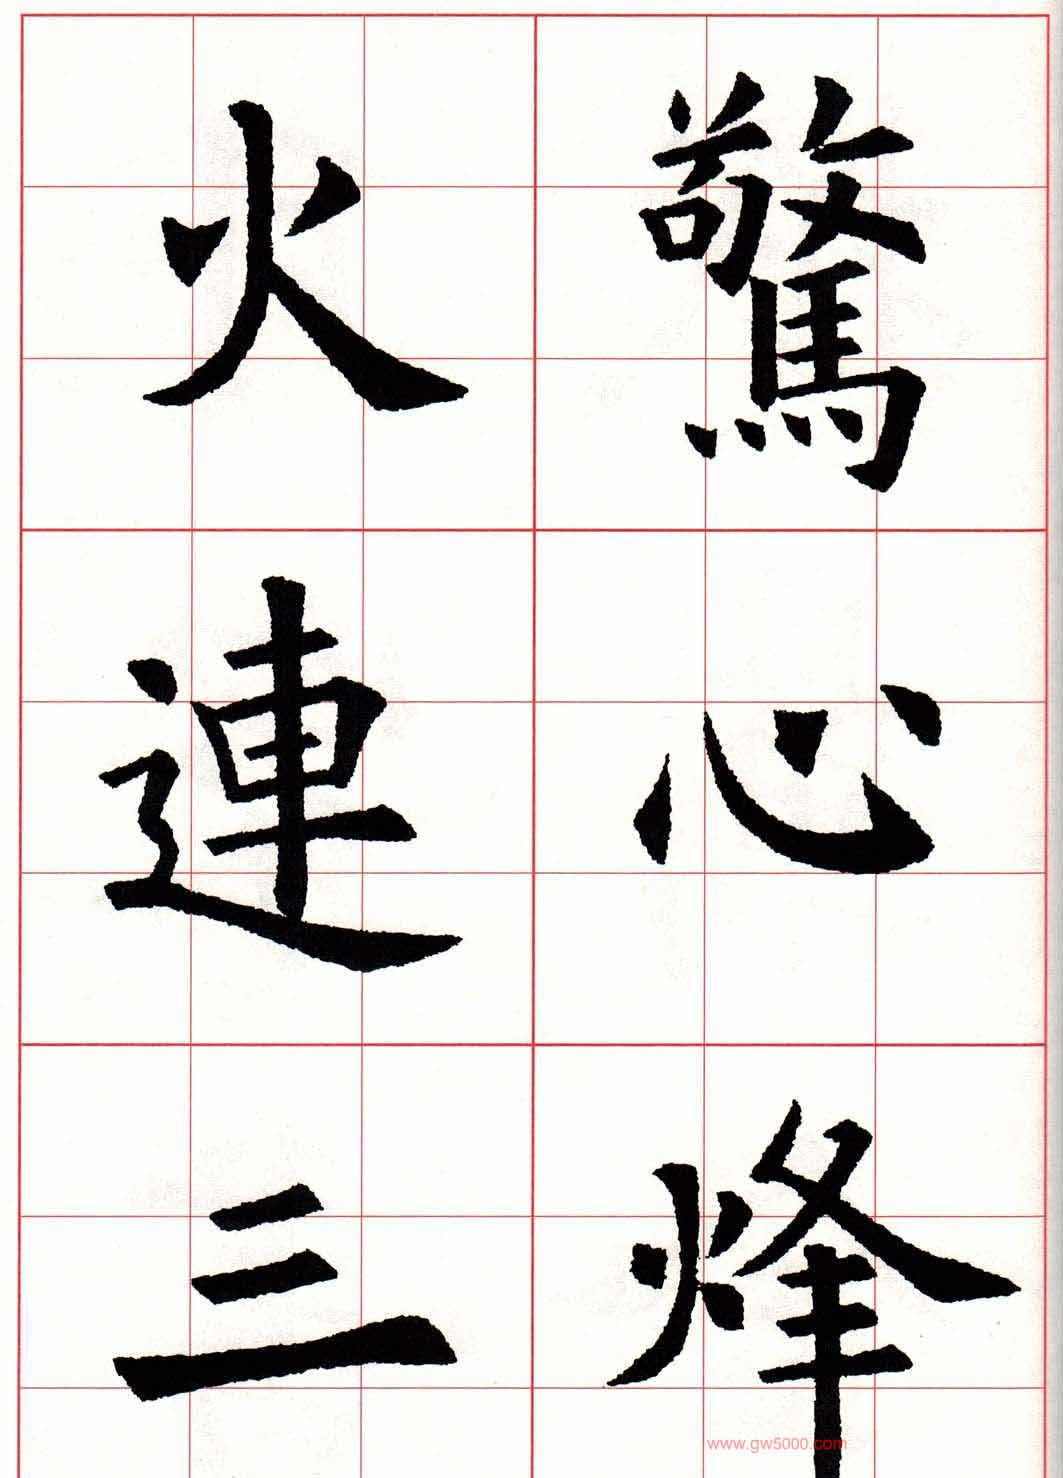 驚心烽
火連三
www.gw5000.com